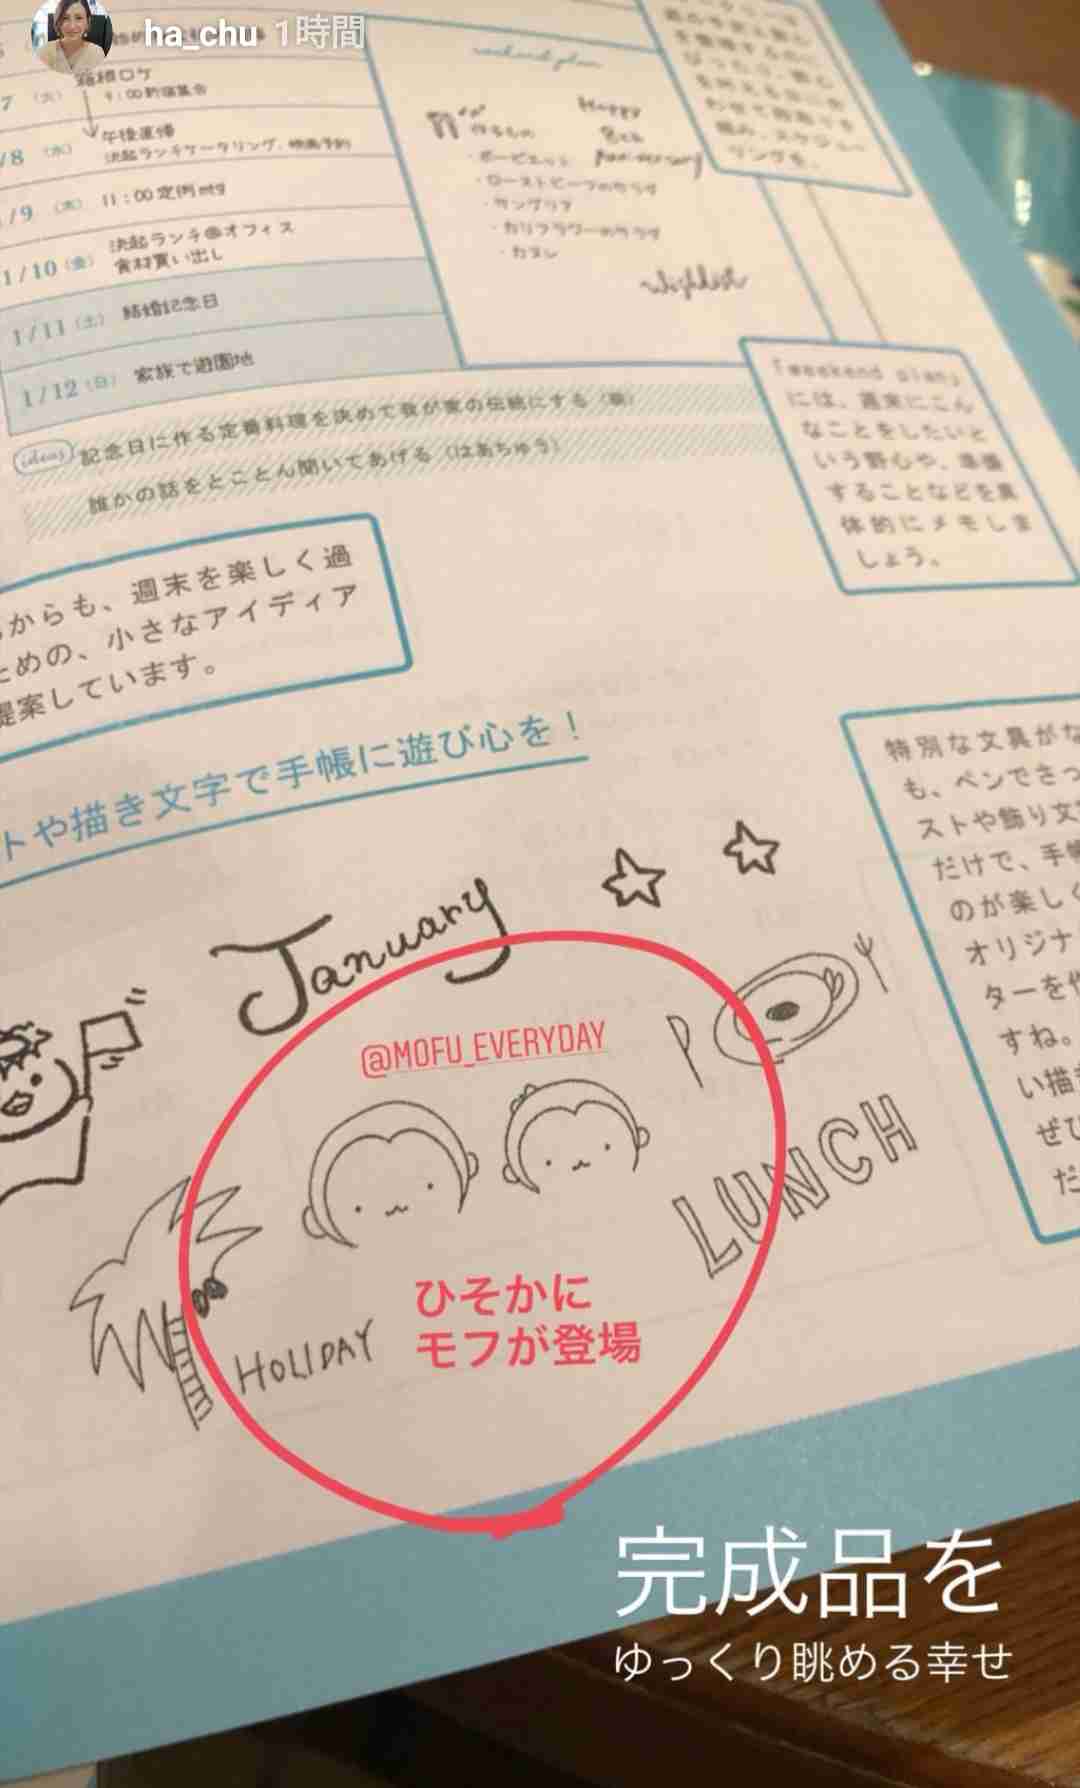 ha_chu 1時間
7（火） 箱根ロケ
9:00新宿集合
/8（水） 午後直帰
決起ランチケータリング、映画予約
/9（木） 11:00定例mtg
1/10（金） 決起ランチ@オフィス
食材買い出し
1/11（土） 結婚記念日
1/12（日） 家族で遊園地
weekend plan
作るもの
・ローストビーフのサラダ
・サングリア
・カリフラワーのサラダ
・カヌレ
Happy
8th
Anniversary
wishlist
ideas 記念日に作る定番料理を決めて我が家の伝統にする
誰かの話をとことん聞いてあげる（はあちゅう）
「weekend plan」
には、週末にこん
なことをしたいと
いう野心や、準備
することなどを具
体的にメモしま
しょう。
からも、週末を楽しく過
ための、小さなアイディア
提案しています。
トや描き文字で手帳に遊び心を！
特別な文具がな
も、ペンでさっ
ストや飾り文
だけで、手帳
のが楽しく
オリジナ
ターを作
すね。
い描き
ぜひ
だ
January
@MOFU_EVERYDAY
LUNCH
HOLIDAY
ひそかに
モフが登場
完成品を
ゆっくり眺める幸せ